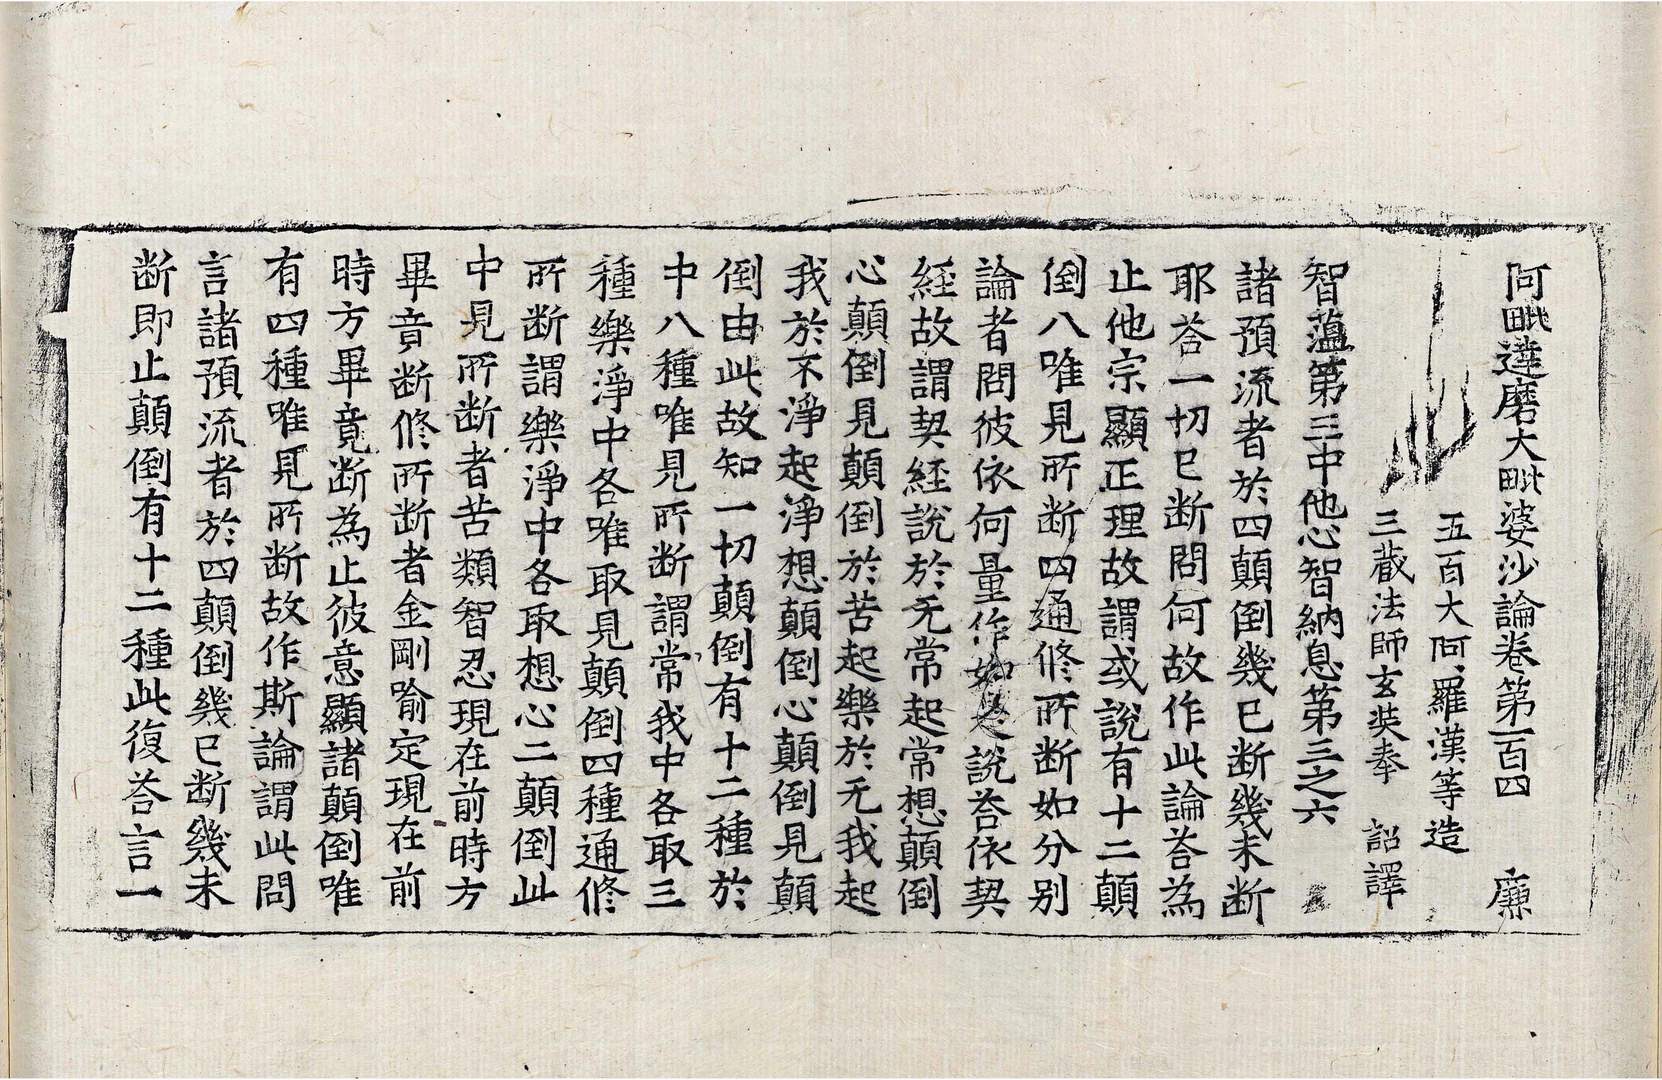 阿毗達磨大毗婆沙論卷第一百四 廉
五百大阿羅漢等造
三藏法師玄奘奉 詔譯
智蘊第三中他心智納息第三之六
諸預流者於四顛倒幾已断幾未断
耶荅一切已断問何故作此論荅為
止他宗顯正理故謂或說有十二顛
倒八唯見所断四通修所断如分别
論者問彼依何量作如是說荅依契
經故謂契經說於无常起常想顛倒
心顛倒見顛倒於苦起樂於无我起
我於不淨起淨想顛倒心顛倒見顛
倒由此故知一切顛倒有十二種於
中八種唯見所断謂常我中各取三
種樂淨中各唯取見顛倒四種通修
所断謂樂淨中各取想心二顛倒此
中見所断者苦類智忍現在前時方
畢竟断修所断者金剛喻定現在前
時方畢竟断為止彼意顯諸顛倒唯
有四種唯見所断故作斯論謂此問
言諸預流者於四顛倒幾已断幾未
断即止顛倒有十二種此復荅言一